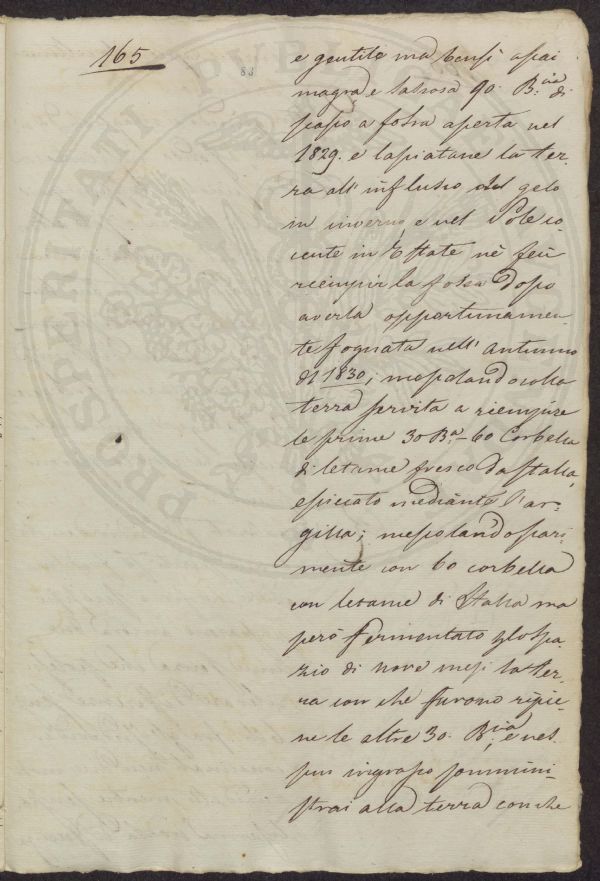 165
83
e gentile ma bensì assai
magra e sassosa 90. B.cia di
passo a fossa aperta nel
1829. e lasciatane la ter-
ra all' influsso del gelo
in inverno, e nel Sole co-
cente in Estate nè feci
riempir la fossa dopo
averla opportunamen-
te fognata nell' autunno
di 1830; mescolando colla
terra servita a riempire
le prime 30 B.a 60 Corbella
di letame fresco da stalla,
mediante l'ar-
gilla; mescolando pari-
mente con 60 corbella
con letame di Stalla ma
però fermentato spa-
zio di nove mesi la ter-
ra con che furono ripie-
ne le altre 30. B.cia, e nes-
sun ingrasso sommini-
strai alla terra con che
PROSPERITATI PVBL